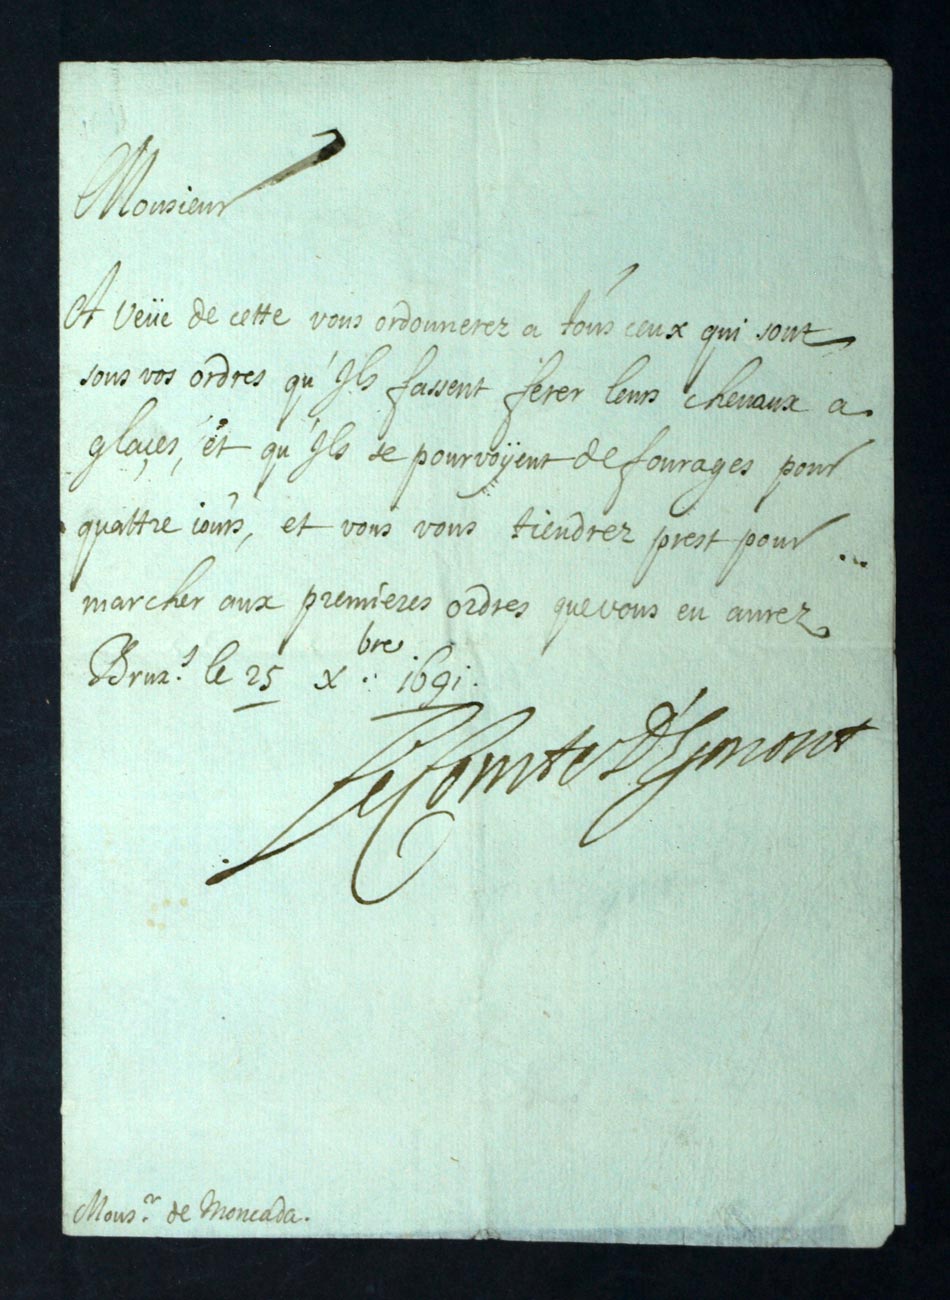 Monsieur
A veüe de cette vous ordonnerez a tous ceux qui sont
sous vos ordres qu'Ils fassent ferer leurs chevaux a
glaçes, et qu'Ils se pourvoÿent de fourages pour
quattre iours, et vous vous tiendrez prest pour
marcher aux premieres ordres que vous en aurez
Brux.s le 25 Xbre 1691.
Le Comte D'Egmont
Mons.r de Moncada.